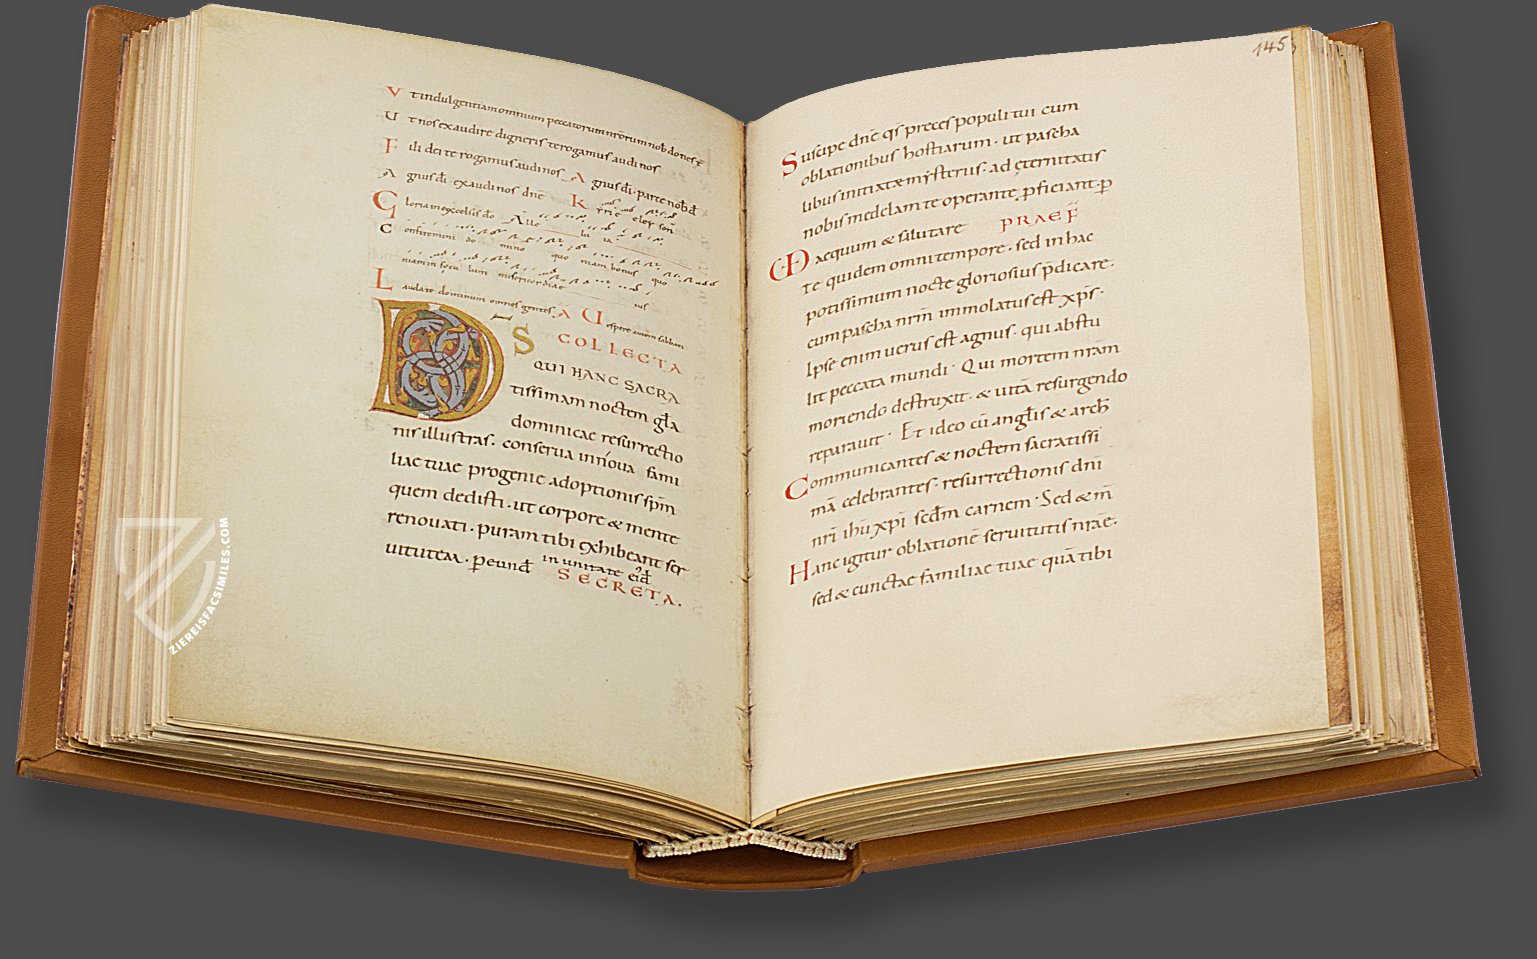 Ut indulgentiam omnium peccatorum nrōrum nob dones t
Ut nos exaudire digneris te rogamus audi nos
Fili dei te rogamus audi nos Agnus di parce nob d
Agnus di exaudi nos dne Kyrie eleyson
Gloria in excelsis do Alle lu ia
Confitemini do mino quo niam bonus quo
niam in secu lum misericordia eius
Laudate dominum omnes gentes A Uespere autem sabbati
COLLECTA
DS QUI HANC SACRA
tissimam noctem gła
dominicae resurrectio
nis illustras. conserua in noua fami
liae tuae progenie adoptionis spm̄
quem dedisti. ut corpore & mente
renouati. puram tibi exhibeant ser
uitutem. p eund in unitate eid
SECRETA.
145
Suscipe dne qs preces populi tui cum
oblationibus hostiarum. ut pascha
libus initiatae mysteriis. ad ęternitatis
nobis medelam te operante pficiant p
PRAEF
UD aequum & salutare
te quidem omni tempore. sed in hac
potissimum nocte gloriosius pdicare.
cum pascha nrm immolatus est xps.
Ipse enim uerus est agnus. qui abstu
lit peccata mundi. Qui mortem nram
moriendo destruxit. & uitā resurgendo
reparauit. Et ideo cū angłis & arch
Communicantes & noctem sacratissi
mā celebrantes. resurrectionis dni
nri ihu xpi scdm carnem. Sed & m̄
Hanc igitur oblationē seruitutis nrae.
sed & cunctae familiae tuae quā tibi
ZIEREISFACSIMILES.COM